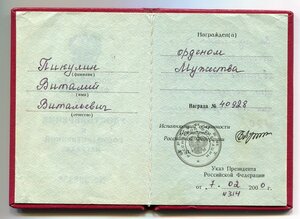 Пикулин
(фамилия)
Виталий
(имя)
Витальевич
(отчество)
Награжден(а)
орденом
Мужества
Награда № 40928
Исполняющий обязанности
Президента
Российской Федерации
Указ Президента
Российской Федерации
от 7. 02 2000 г.
№ 314